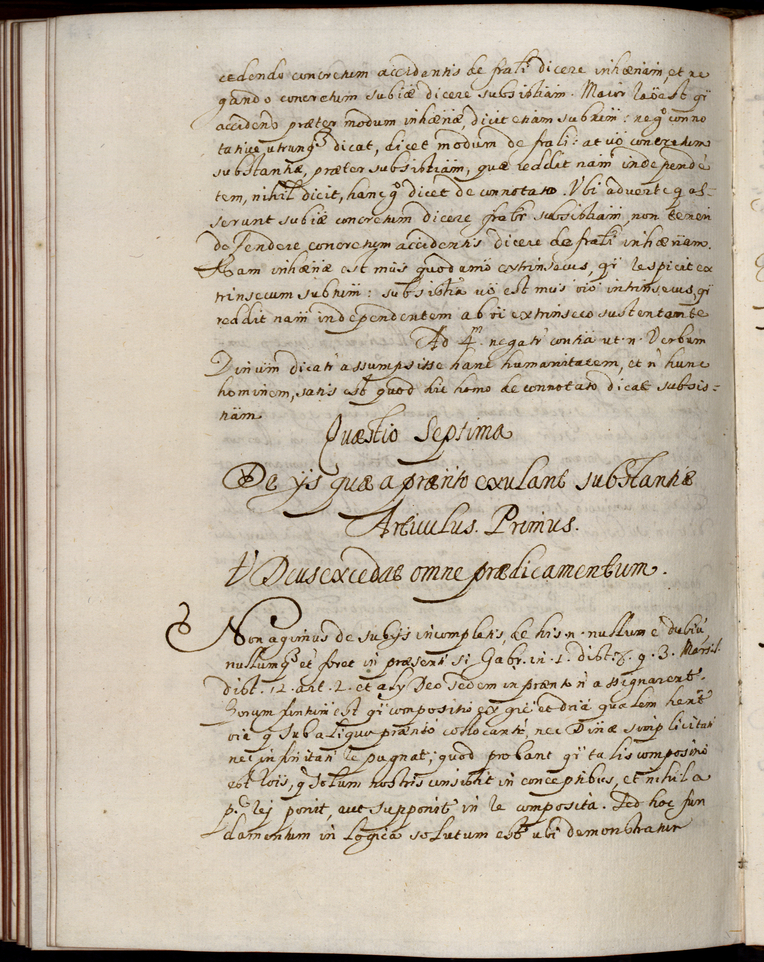 cedendo concretum accidentis de frali dicere inhænam, et ne
gando concretum subiæ dicere subsistiam. Maior rao est qi
accidens præter modum inhænæ, dicit etiam subium: neqo conno
tative utrumq dicat, dicet modum de frali: at vo concretum
substantiæ, præter subsistiam, quæ reddit nam independe
tem, nihil dicit, hanc qo dicet de connotato. Ubi adverte q as-
serunt subiæ concretum dicere subsistiam, non teneri
defendere concretum accidentis dicere de frali inhænam.
Nam inhænæ est mus quodamo extrinsecus, qi respicit ex
trinsecum subium: subsistia vo est mus oio intrinsecus, qi
reddit nam independentem ab oi extrinseco sustentante
Ad 4m negatr contia ut n. Verbum
Divium dicatr assumpsisse hanc humanitatem, et n hunc
hominem, satis est quod hic homo de connotato dicat subsis=
tiam
Quæstio Septima
De ijs quæ a prænto exulant substantiæ
Articulus Primus.
V Deus excedat omne prædicamentum.
Non agimus de subijs incompletis, de his n. nullum e dubiu,
nullumq et foret in præsenti si Gabr. in. 1. dist. 8. q. 3. Marsil.
dist. 12. art. 2. et alij Deo sedem in prænto n assignarent.
Horum funtum est qi compositio ex gie et dria qualem hent
oia q sub aliquo prænto collocantr, nec Divinæ simplicitati
nec infinitati repugnat; quod probant qi talis compositio
est rois, q solum nostris consistit in conceptibus, et nihil a
p. rei ponit, aut supponit in re composita. Sed hoc fun
damentum in Logica solutum est ubi demonstratur